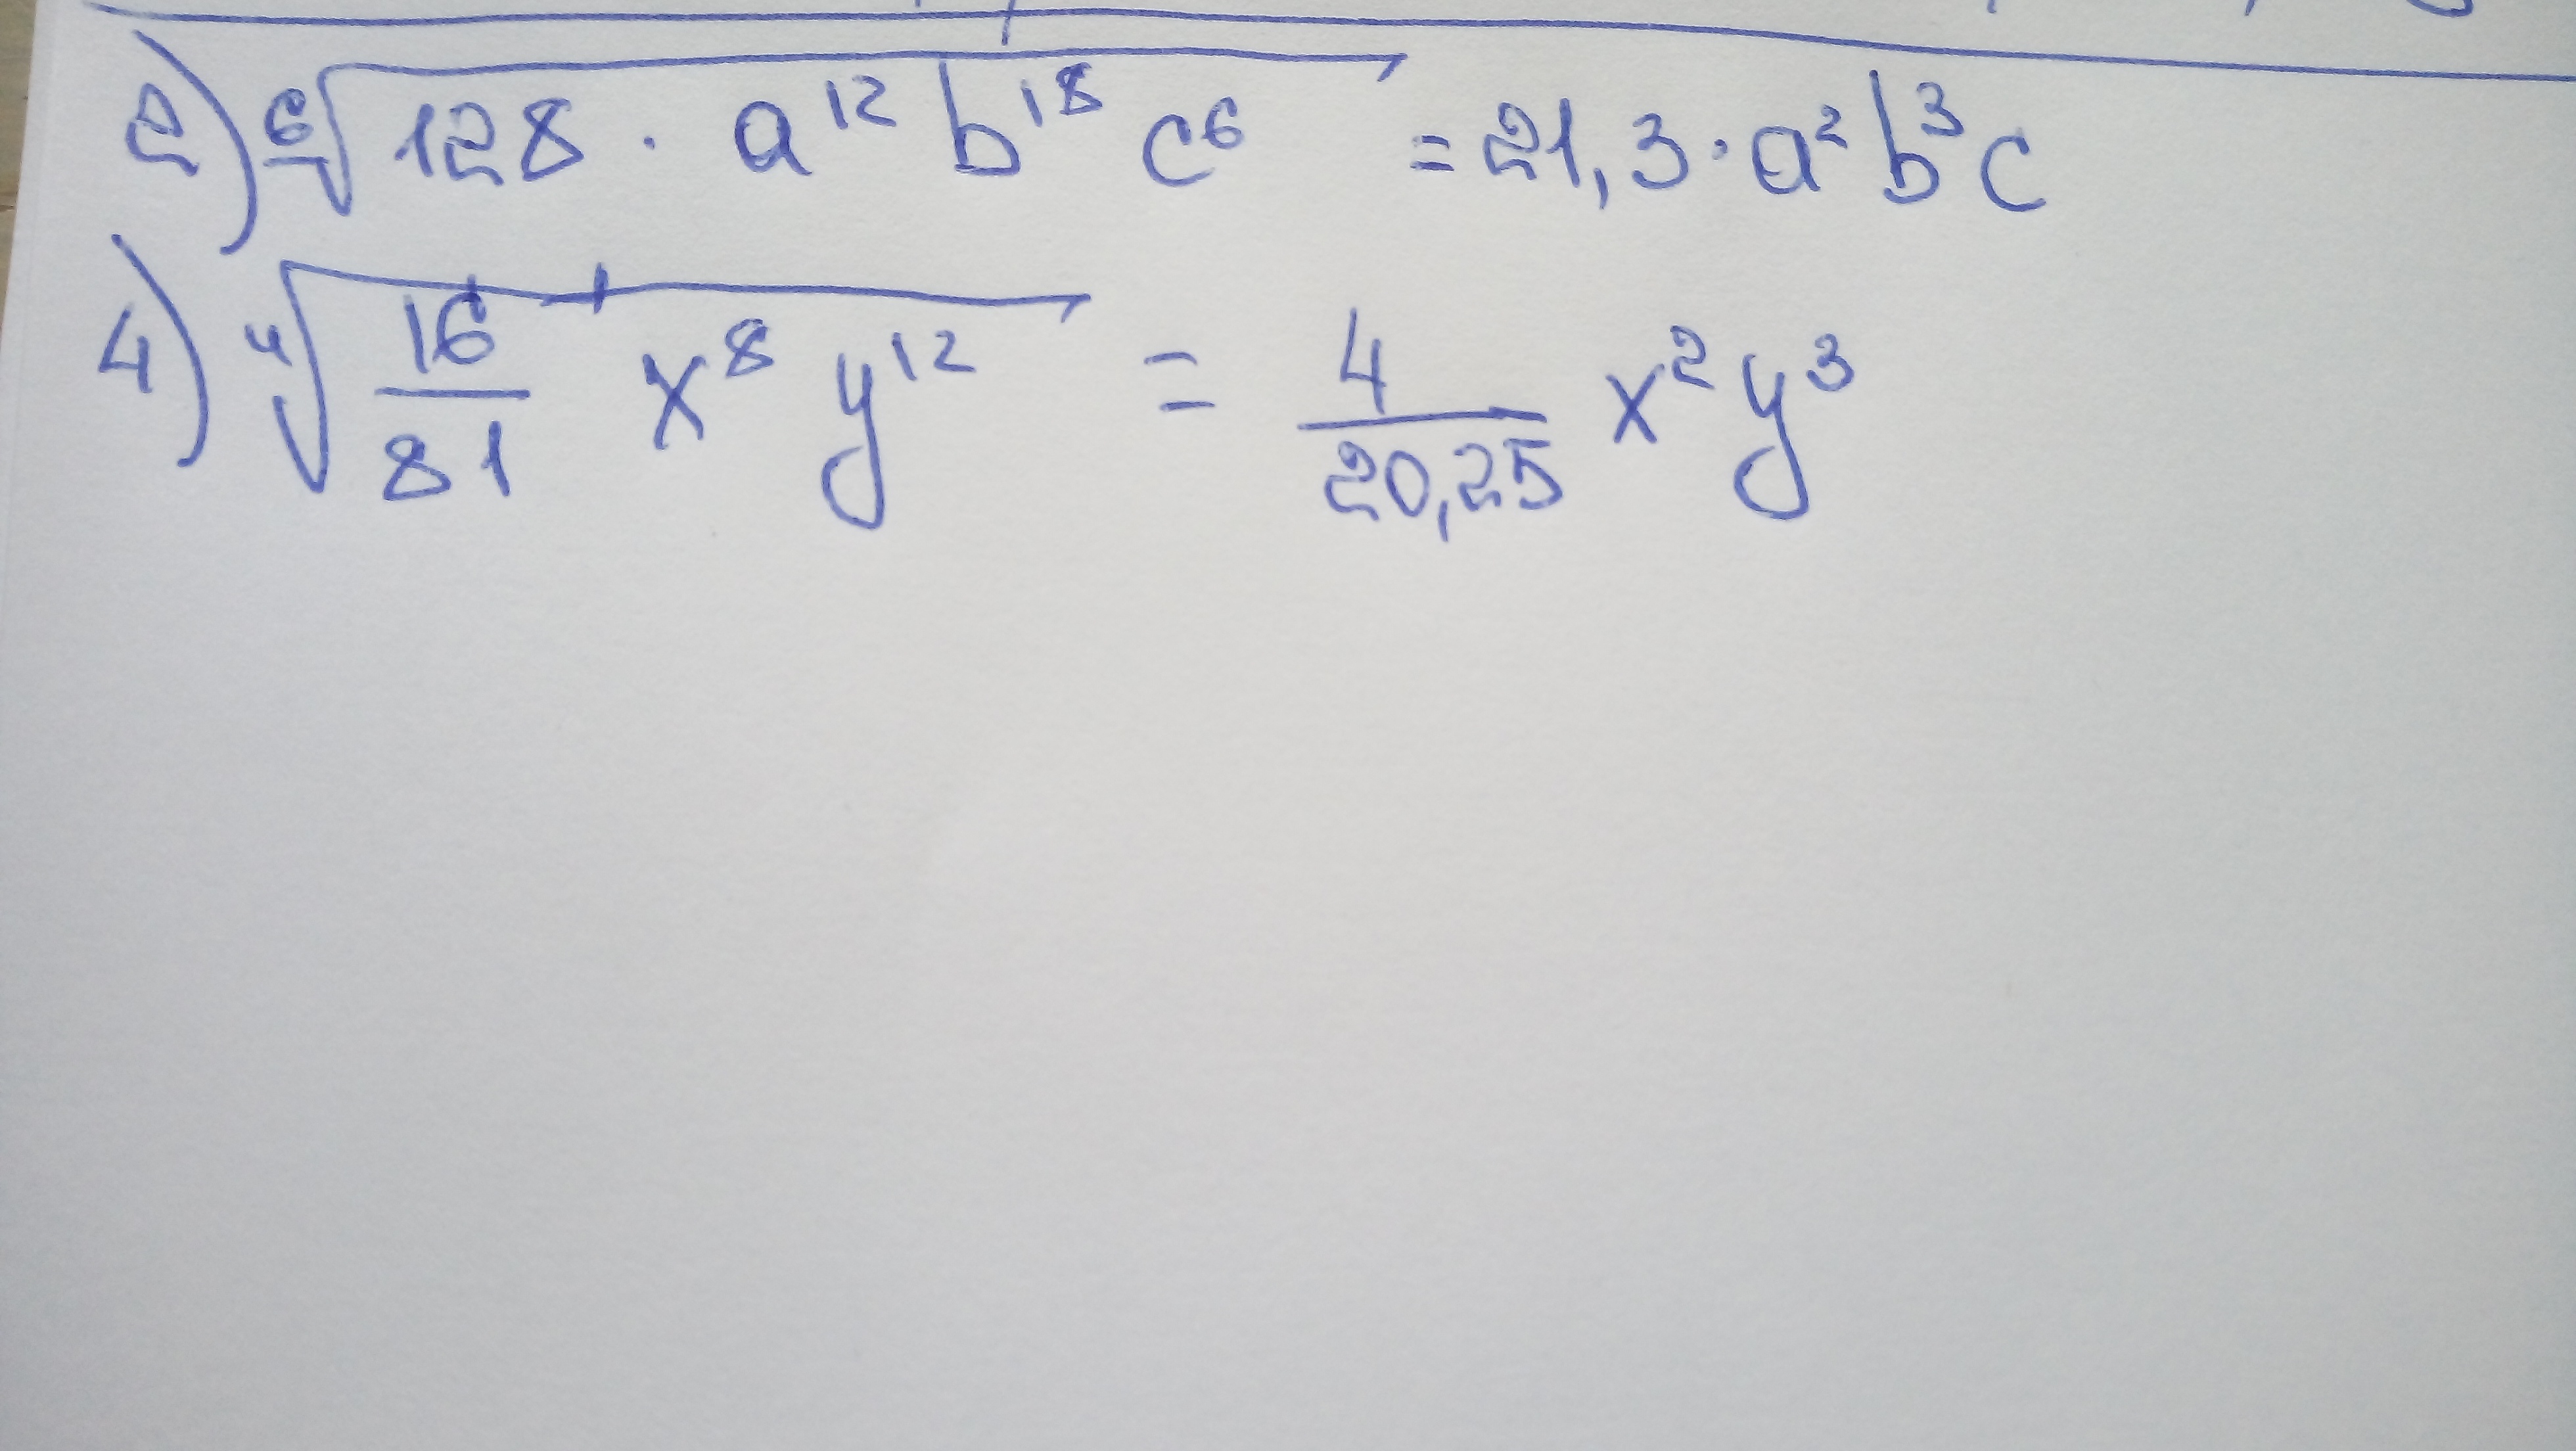 2) ⁶√128 · a¹² b¹⁸ c⁶ = 21,3 · a² b³ c
4) ⁴√16/81 x⁸ y¹² = 4/20,25 x² y³